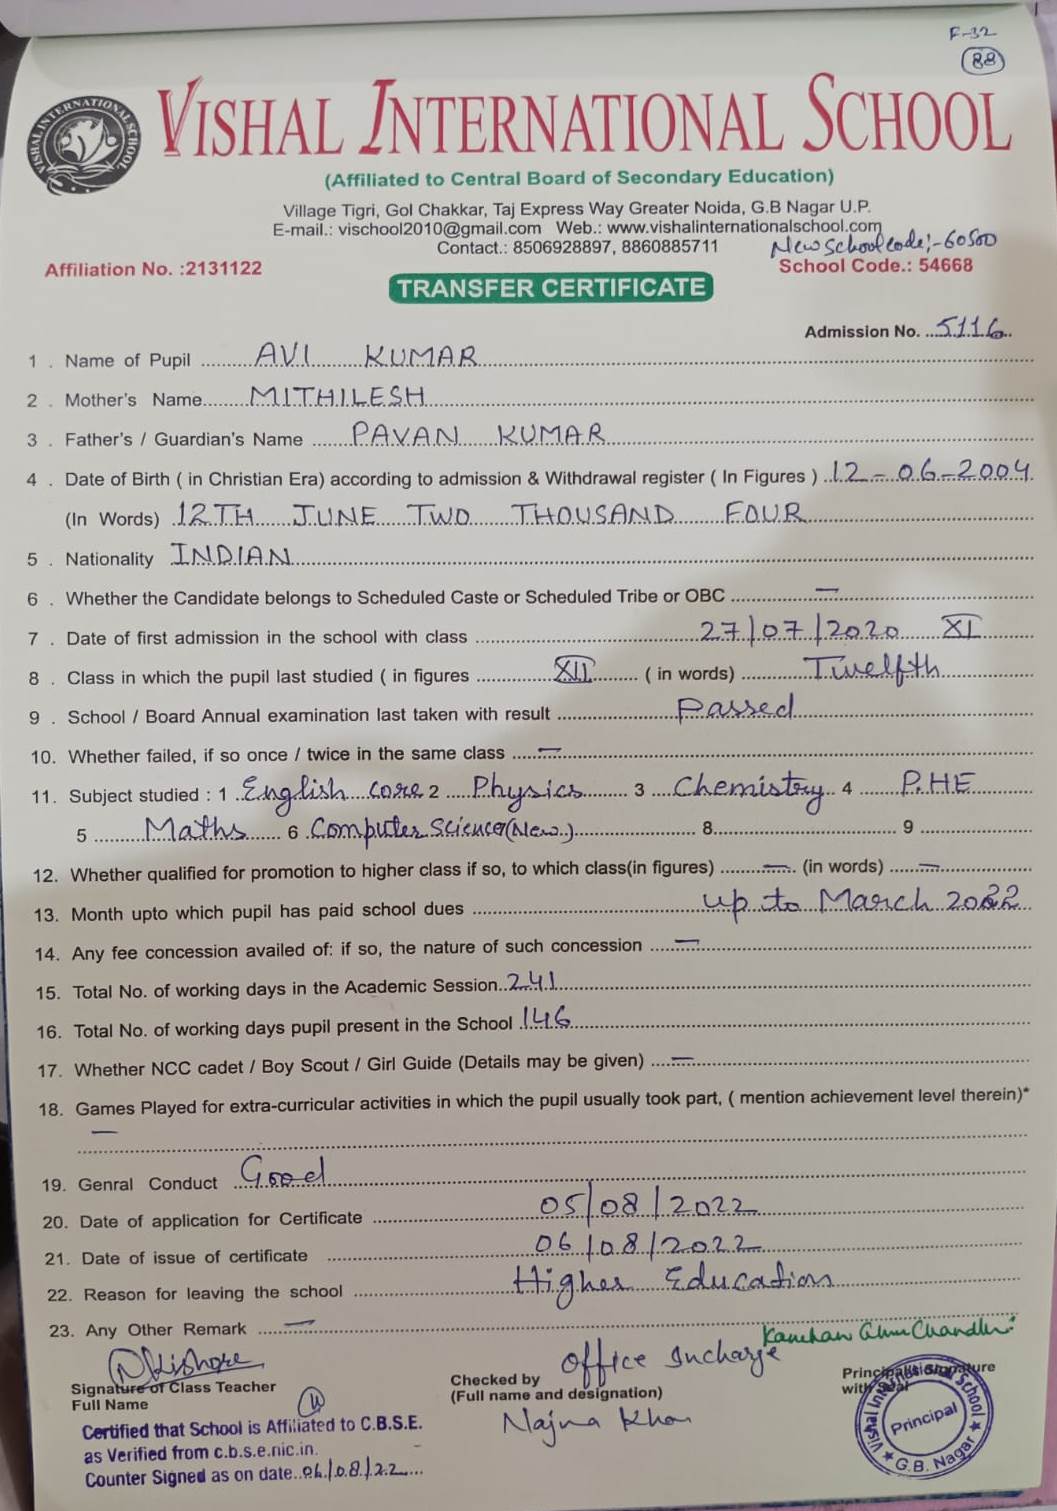 F-32
88
VISHAL INTERNATIONAL SCHOOL
VISHAL INTERNATIONAL SCHOOL
(Affiliated to Central Board of Secondary Education)
Village Tigri, Gol Chakkar, Taj Express Way Greater Noida, G.B Nagar U.P.
E-mail.: vischool2010@gmail.com Web.: www.vishalinternationalschool.com
Contact.: 8506928897, 8860885711 New School code:- 60500
Affiliation No. :2131122 School Code.: 54668
TRANSFER CERTIFICATE
Admission No. 5116
1 . Name of Pupil AVI KUMAR
2 . Mother's Name MITHILESH
3 . Father's / Guardian's Name PAVAN KUMAR
4 . Date of Birth ( in Christian Era) according to admission & Withdrawal register ( In Figures ) 12-06-2004
(In Words) 12TH JUNE TWO THOUSAND FOUR
5 . Nationality INDIAN
6 . Whether the Candidate belongs to Scheduled Caste or Scheduled Tribe or OBC —
7 . Date of first admission in the school with class 27/07/2020 XI
8 . Class in which the pupil last studied ( in figures XII ( in words) Twelfth
9 . School / Board Annual examination last taken with result Passed
10. Whether failed, if so once / twice in the same class —
11. Subject studied : 1 English core 2 Physics 3 Chemistry 4 P.HE
5 Maths 6 Computer Science(New) 8 9
12. Whether qualified for promotion to higher class if so, to which class(in figures) — (in words) —
13. Month upto which pupil has paid school dues up to March 2022
14. Any fee concession availed of: if so, the nature of such concession —
15. Total No. of working days in the Academic Session 241
16. Total No. of working days pupil present in the School 146
17. Whether NCC cadet / Boy Scout / Girl Guide (Details may be given) —
18. Games Played for extra-curricular activities in which the pupil usually took part, ( mention achievement level therein)*
—
19. Genral Conduct Good
20. Date of application for Certificate 05/08/2022
21. Date of issue of certificate 06/08/2022
22. Reason for leaving the school Higher Education
23. Any Other Remark —
Kanchan
Kishore Office Incharge
Signature of Class Teacher Checked by Principal Signature
Full Name (Full name and designation) with Seal
Najma Khan
Certified that School is Affiliated to C.B.S.E.
as Verified from c.b.s.e.nic.in.
Counter Signed as on date 06/08/22
Vishal International School
Principal
G.B. Nagar